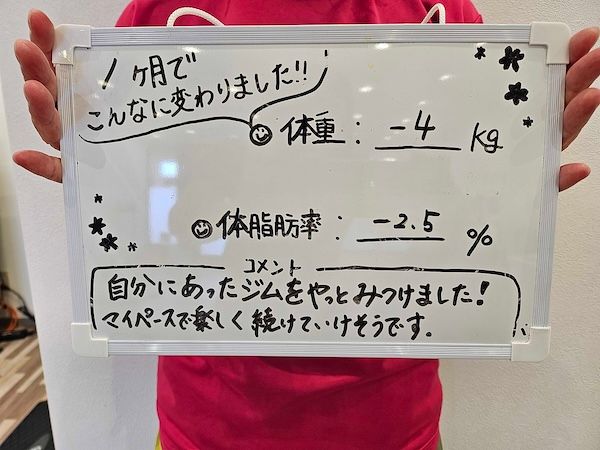 1ヶ月で
こんなに変わりました!!
体重: -4 kg
体脂肪率: -2.5 %
コメント
自分にあったジムをやっとみつけました!
マイペースで楽しく続けていけそうです。